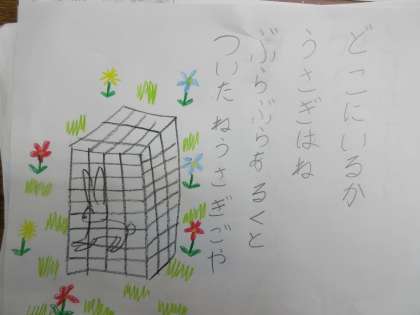 どこにいるか
うさぎはね
ぶらぶらあるくと
ついたねうさぎごや